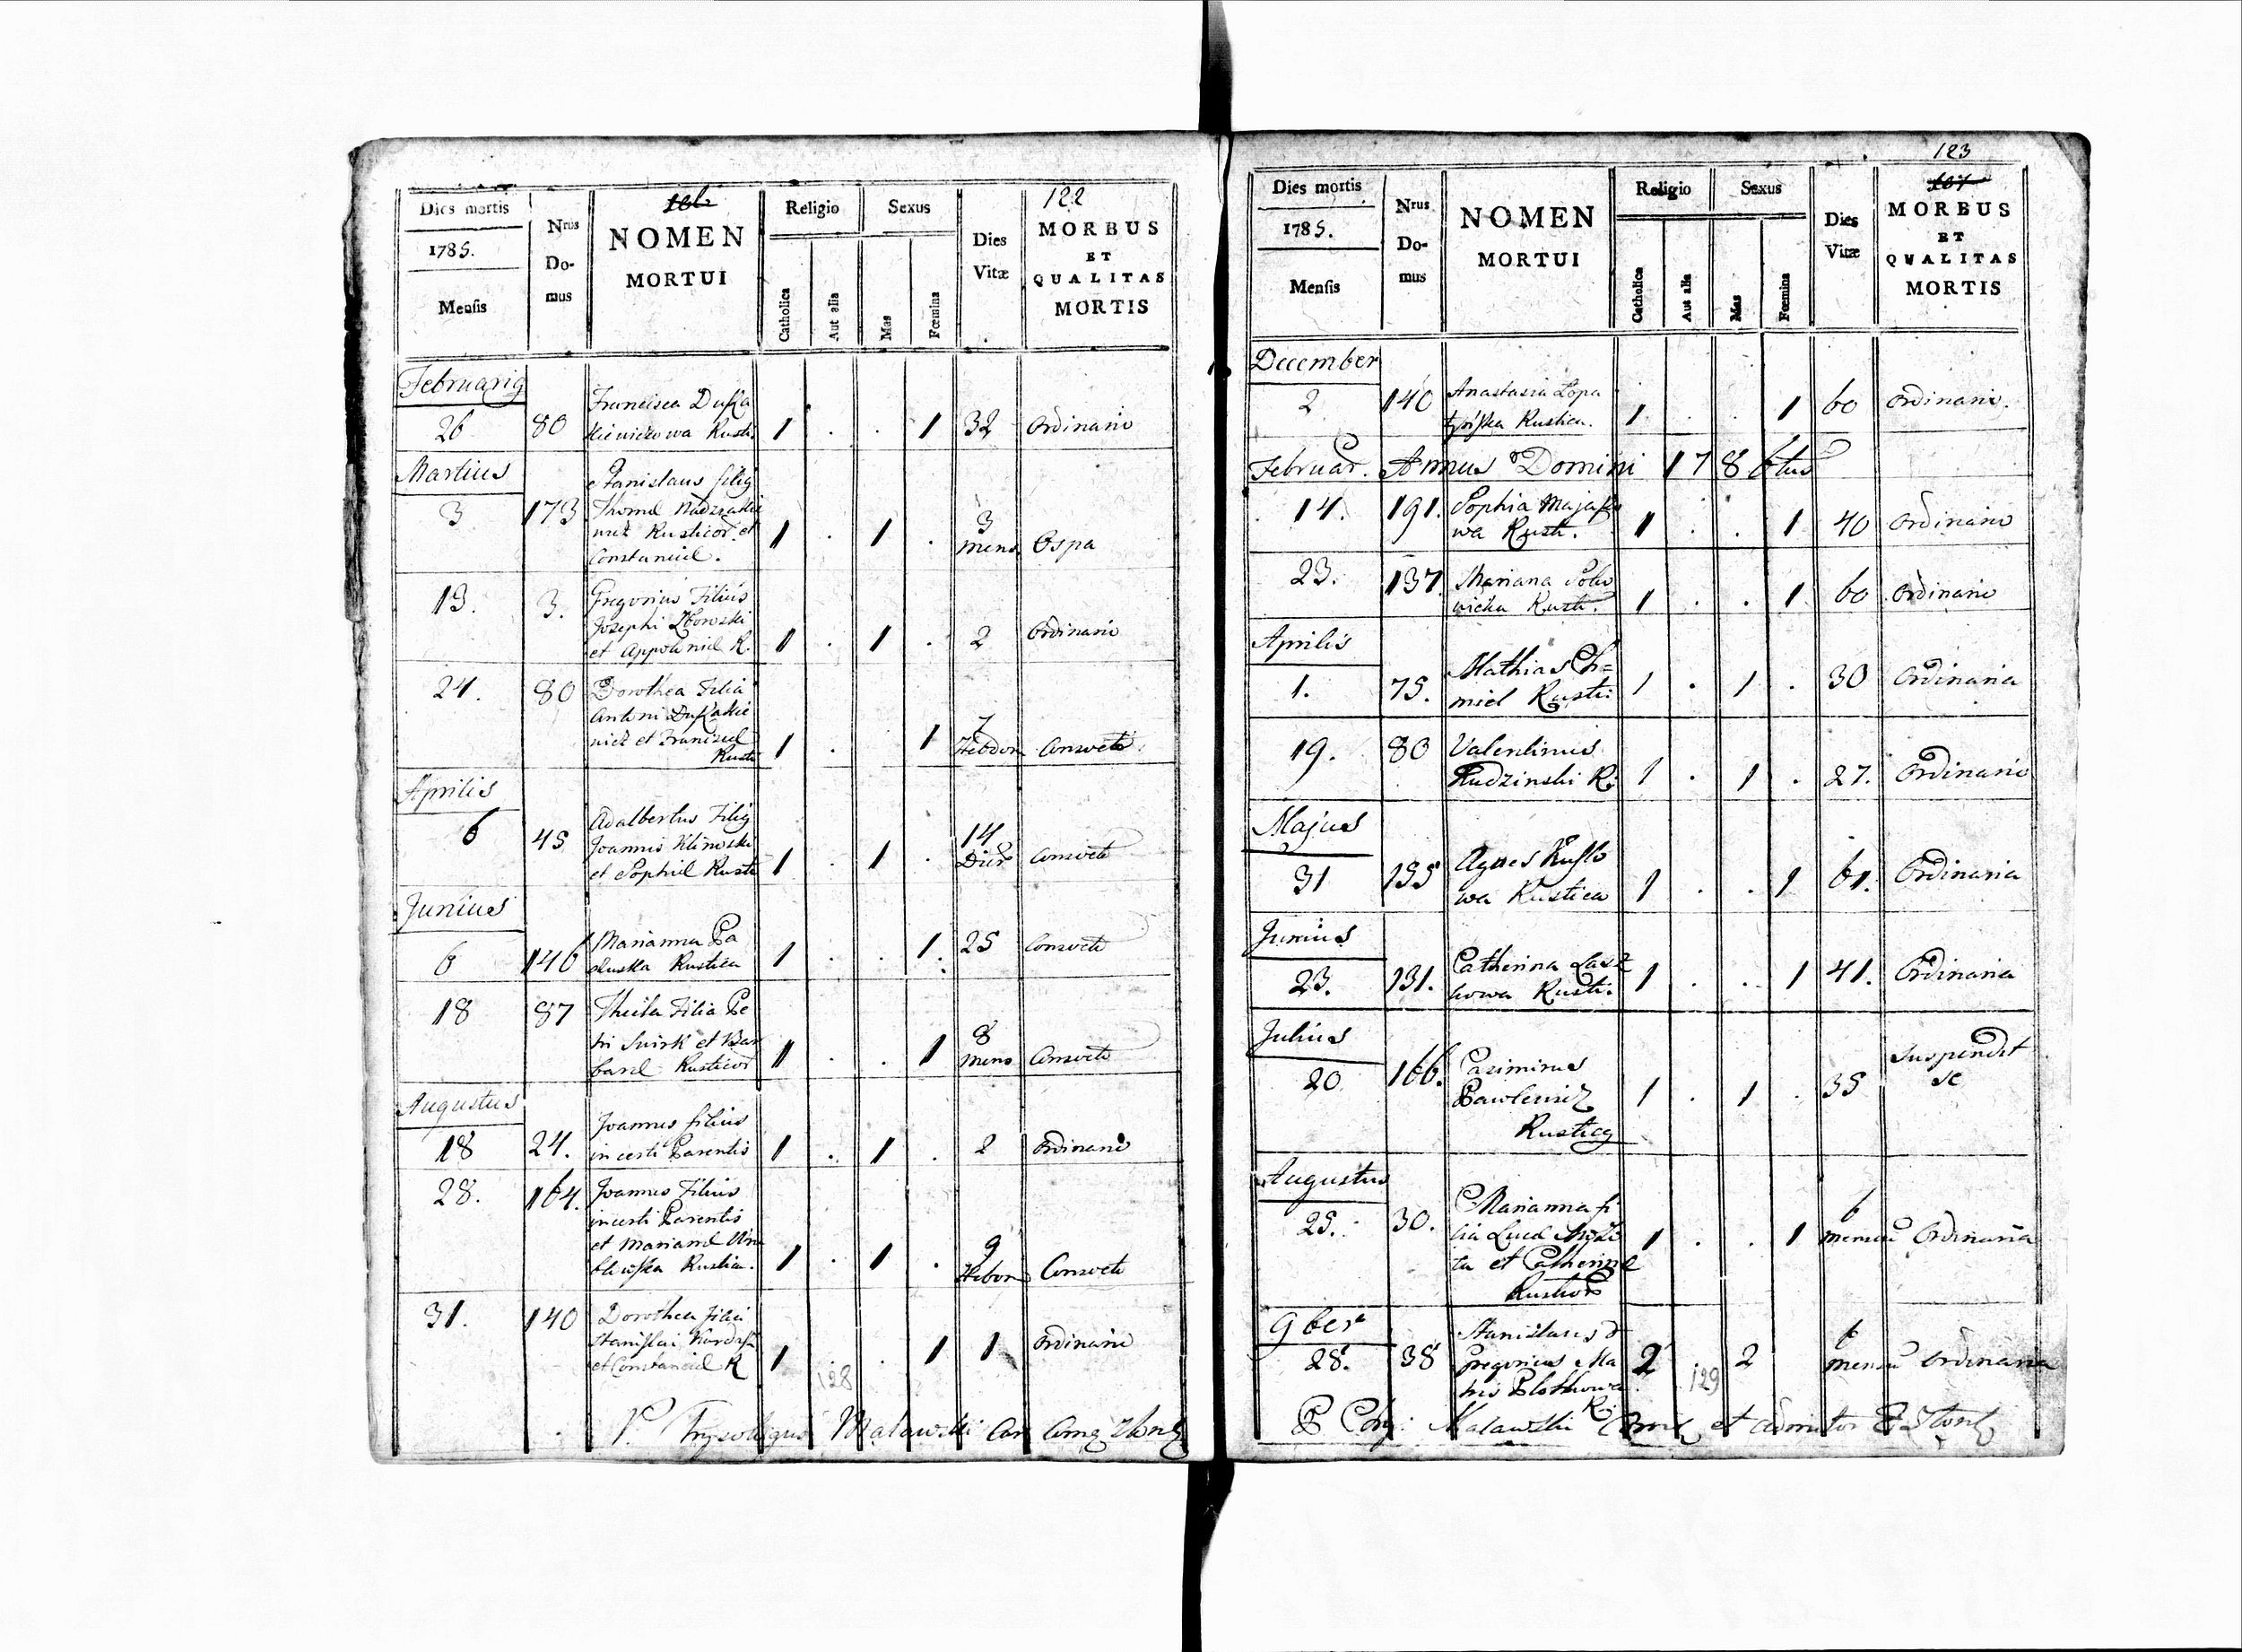 122
Dies mortis
1785.
Mensis
Nrus
Do-
mus
NOMEN
MORTUI
Religio
Catholica
Aut alia
Sexus
Mas
Fœmina
Dies
Vitæ
MORBUS
ET
QUALITAS
MORTIS
Februarig
26 80 Francisca
Rusti. 1 . . 1 32 Ordinario
Martius
3 173 Stanislaus filig
Thomæ
Rusticor. et
Constanciæ. 1 . 1 . 3 Mens Ospa
13. 3. Gregorius Filius
Josephi Zborowski
et Appoloniæ R. 1 . 1 . 2 Ordinario
24. 80 Dorothea Filia
Antoni
et Francisæ
Rusti 1 . . 1 7 Hebdom Consveto
Aprilis
6 45 Adalbertus Filig
Joannis Klinowski
et Sophiæ Rusti 1 . 1 . 14 Dier Consveto
Junius
6 146 Marianna Pa
Rustica 1 . . 1 25 Consveto
18 87 Thecla Filia Pe
tri Swirk et Bar
baræ Rusticor 1 . . 1 8 Mens Consveto
Augustus
18 24. Joannes filius
incerti Parentis 1 . 1 . 2 Ordinario
28. 164. Joannes Filius
incerti Parentis
et Marianæ
Rustica. 1 . 1 . 9 Hebdom Consveto
31. 140 Dorothea filia
Stanislai
et Constanciæ R 1 . . 1 1 Ordinario
128
P. Chrysologus Malawski
123
Dies mortis
1785.
Mensis
Nrus
Do-
mus
NOMEN
MORTUI
Religio
Catholica
Aut alia
Sexus
Mas
Fœmina
Dies
Vitæ
MORBUS
ET
QVALITAS
MORTIS
December
2 140 Anastasia Lopa
Rustica. 1. . . 1 60 Ordinario.
Februar. Annus Domini 1786tus
14. 191. Sophia
wa Rusti. 1 . . 1 40 Ordinario
23. 137. Mariana
wicka Rusti. 1 . . 1 60 Ordinario
Aprilis
1. 75. Mathias Ch=
miel Rusti: 1 . 1 . 30 Ordinaria
19. 80 Valentinus
Rudzinski R: 1 . 1 . 27. Ordinario
Majus
31 155 Agnes
wa Rustica 1 . . 1 61. Ordinaria
Junius
23. 131. Catherina Lasz
kowa Rusti. 1 . . 1 41. Ordinaria
Julius
20 166. Casimirus
Pawlewicz
Rusticg 1 . 1 . 35 Suspendit
se
Augustus
25. 30. Marianna fi
lia Lucæ
ta et Catherinæ
Rustior 1 . . 1 6 mensiu Ordinaria
9bera
28. 38 Stanislaus &
Gregorius Ma
tris
R: 2 . 2 6 mensiu Ordinaria
129
P Chry: Malawski et admitor